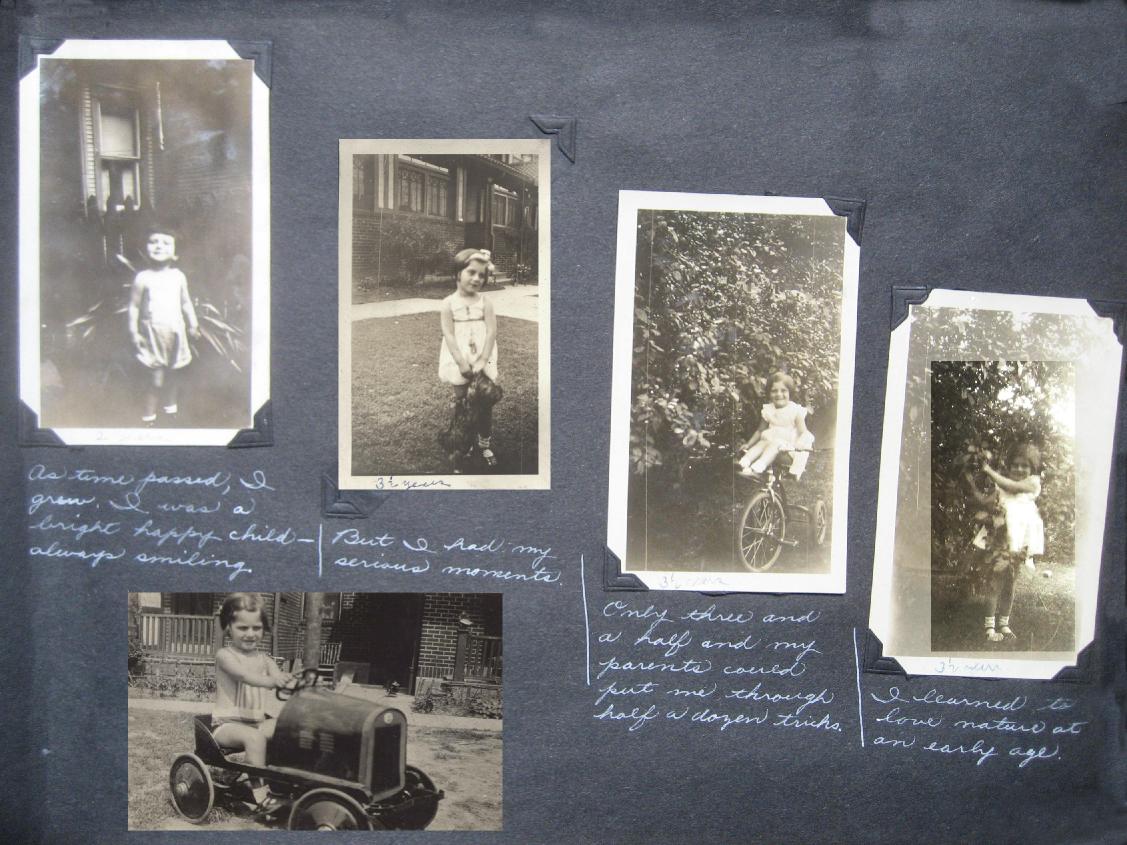 2 years
As time passed, I
grew. I was a
bright happy child—
always smiling.
3½ years
But I had my
serious moments.
3½ years
Only three and
a half and my
parents could
put me through
half a dozen tricks.
3½ years
I learned to
love nature at
an early age.